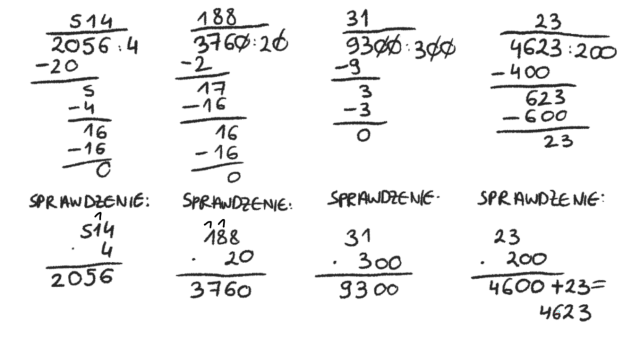 514
2056 : 4
-20
5
-4
16
-16
0
SPRAWDZENIE:
1
514
· 4
2056
188
3760 : 20
-2
17
-16
16
-16
0
SPRAWDZENIE:
1 1
188
· 20
3760
31
9300 : 300
-9
3
-3
0
SPRAWDZENIE·
31
· 300
9300
23
4623 : 200
-400
623
-600
23
SPRAWDZENIE:
23
· 200
4600 + 23 =
4623